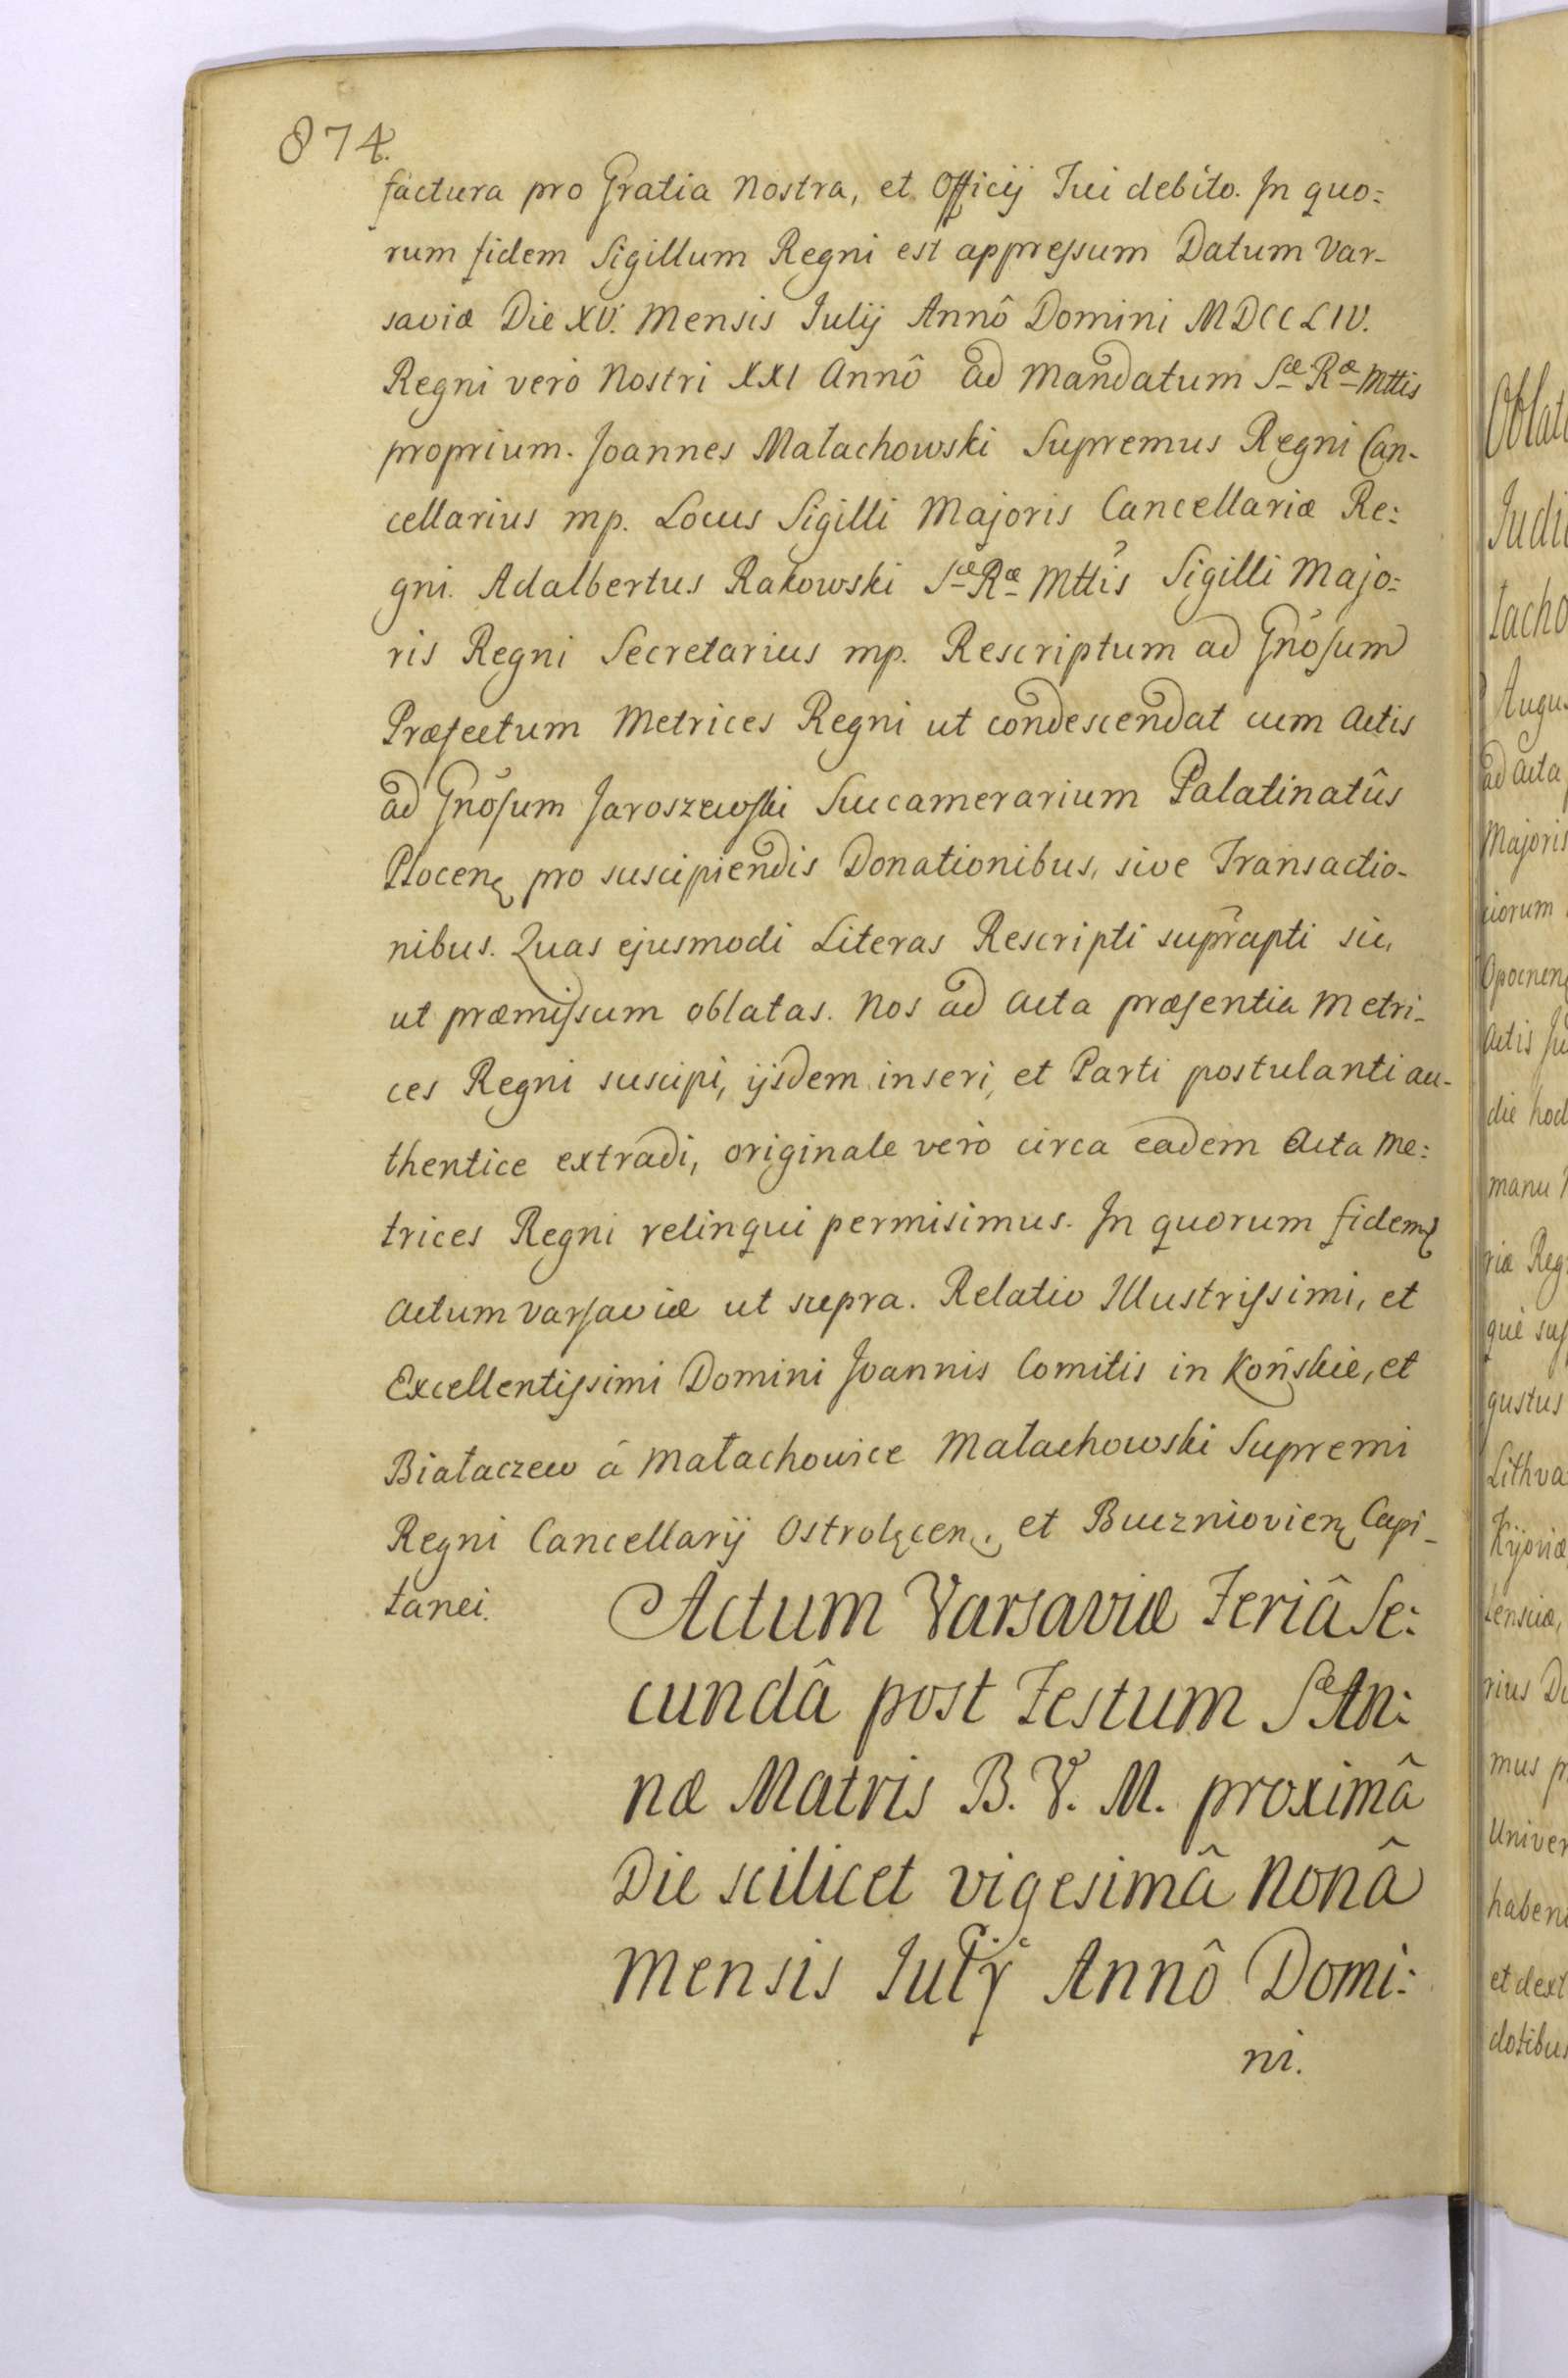 874.
factura pro Gratia Nostra, et Officij Sui debito. In quo:
rum fidem Sigillum Regni est appressum Datum Var-
saviæ Die XV. Mensis Julij Annô Domini MDCCLIV.
Regni verò Nostri XXI Annô ad Mandatum Sæ Ræ Mttis
proprium. Joannes Małachowski Supremus Regni Can-
cellarius mp. Locus Sigilli Majoris Cancellariæ Re:
gni. Adalbertus Rakowski Sæ Ræ Mttis Sigilli Majo:
ris Regni Secretarius mp. Rescriptum ad Gnosum
Præfectum Metrices Regni ut condescendat cum Actis
ad Gnosum Jaroszewski Succamerarium Palatinatûs
Płocenę pro suscipiendis Donationibus, sive Transactio-
nibus. Quas ejusmodi Literas Rescripti suprapti sic,
ut præmissum oblatas. Nos ad Acta præsentia Metri-
ces Regni suscipi, ijsdem inseri, et Parti postulanti au-
thentice extradi, originale verò circa eadem Acta Me:
trices Regni relinqui permisimus. In quorum fidem
Actum Varsaviæ ut supra. Relatio Illustrissimi, et
Excellentissimi Domini Joannis Comitis in Końskie, et
Białaczew â Małachowice Małachowski Supremi
Regni Cancellarij Ostrolęcenę. et Buczniovienę Capi-
tanei.
Actum Varsaviæ Feriâ Se:
cundâ post Festum Sæ An:
næ Matris B. V. M. proximâ
Die scilicet vigesimâ nonâ
Mensis Julij Annô Domi:
ni.
Judi
tacho
Augu
ad Acta
Majoris
Opocnenę
Actis Ju
die hod
manu
riæ Reg
gustus
Lithva
Kijoviæ
rius Du
mus p
Univer
haben
et dext
dotibus